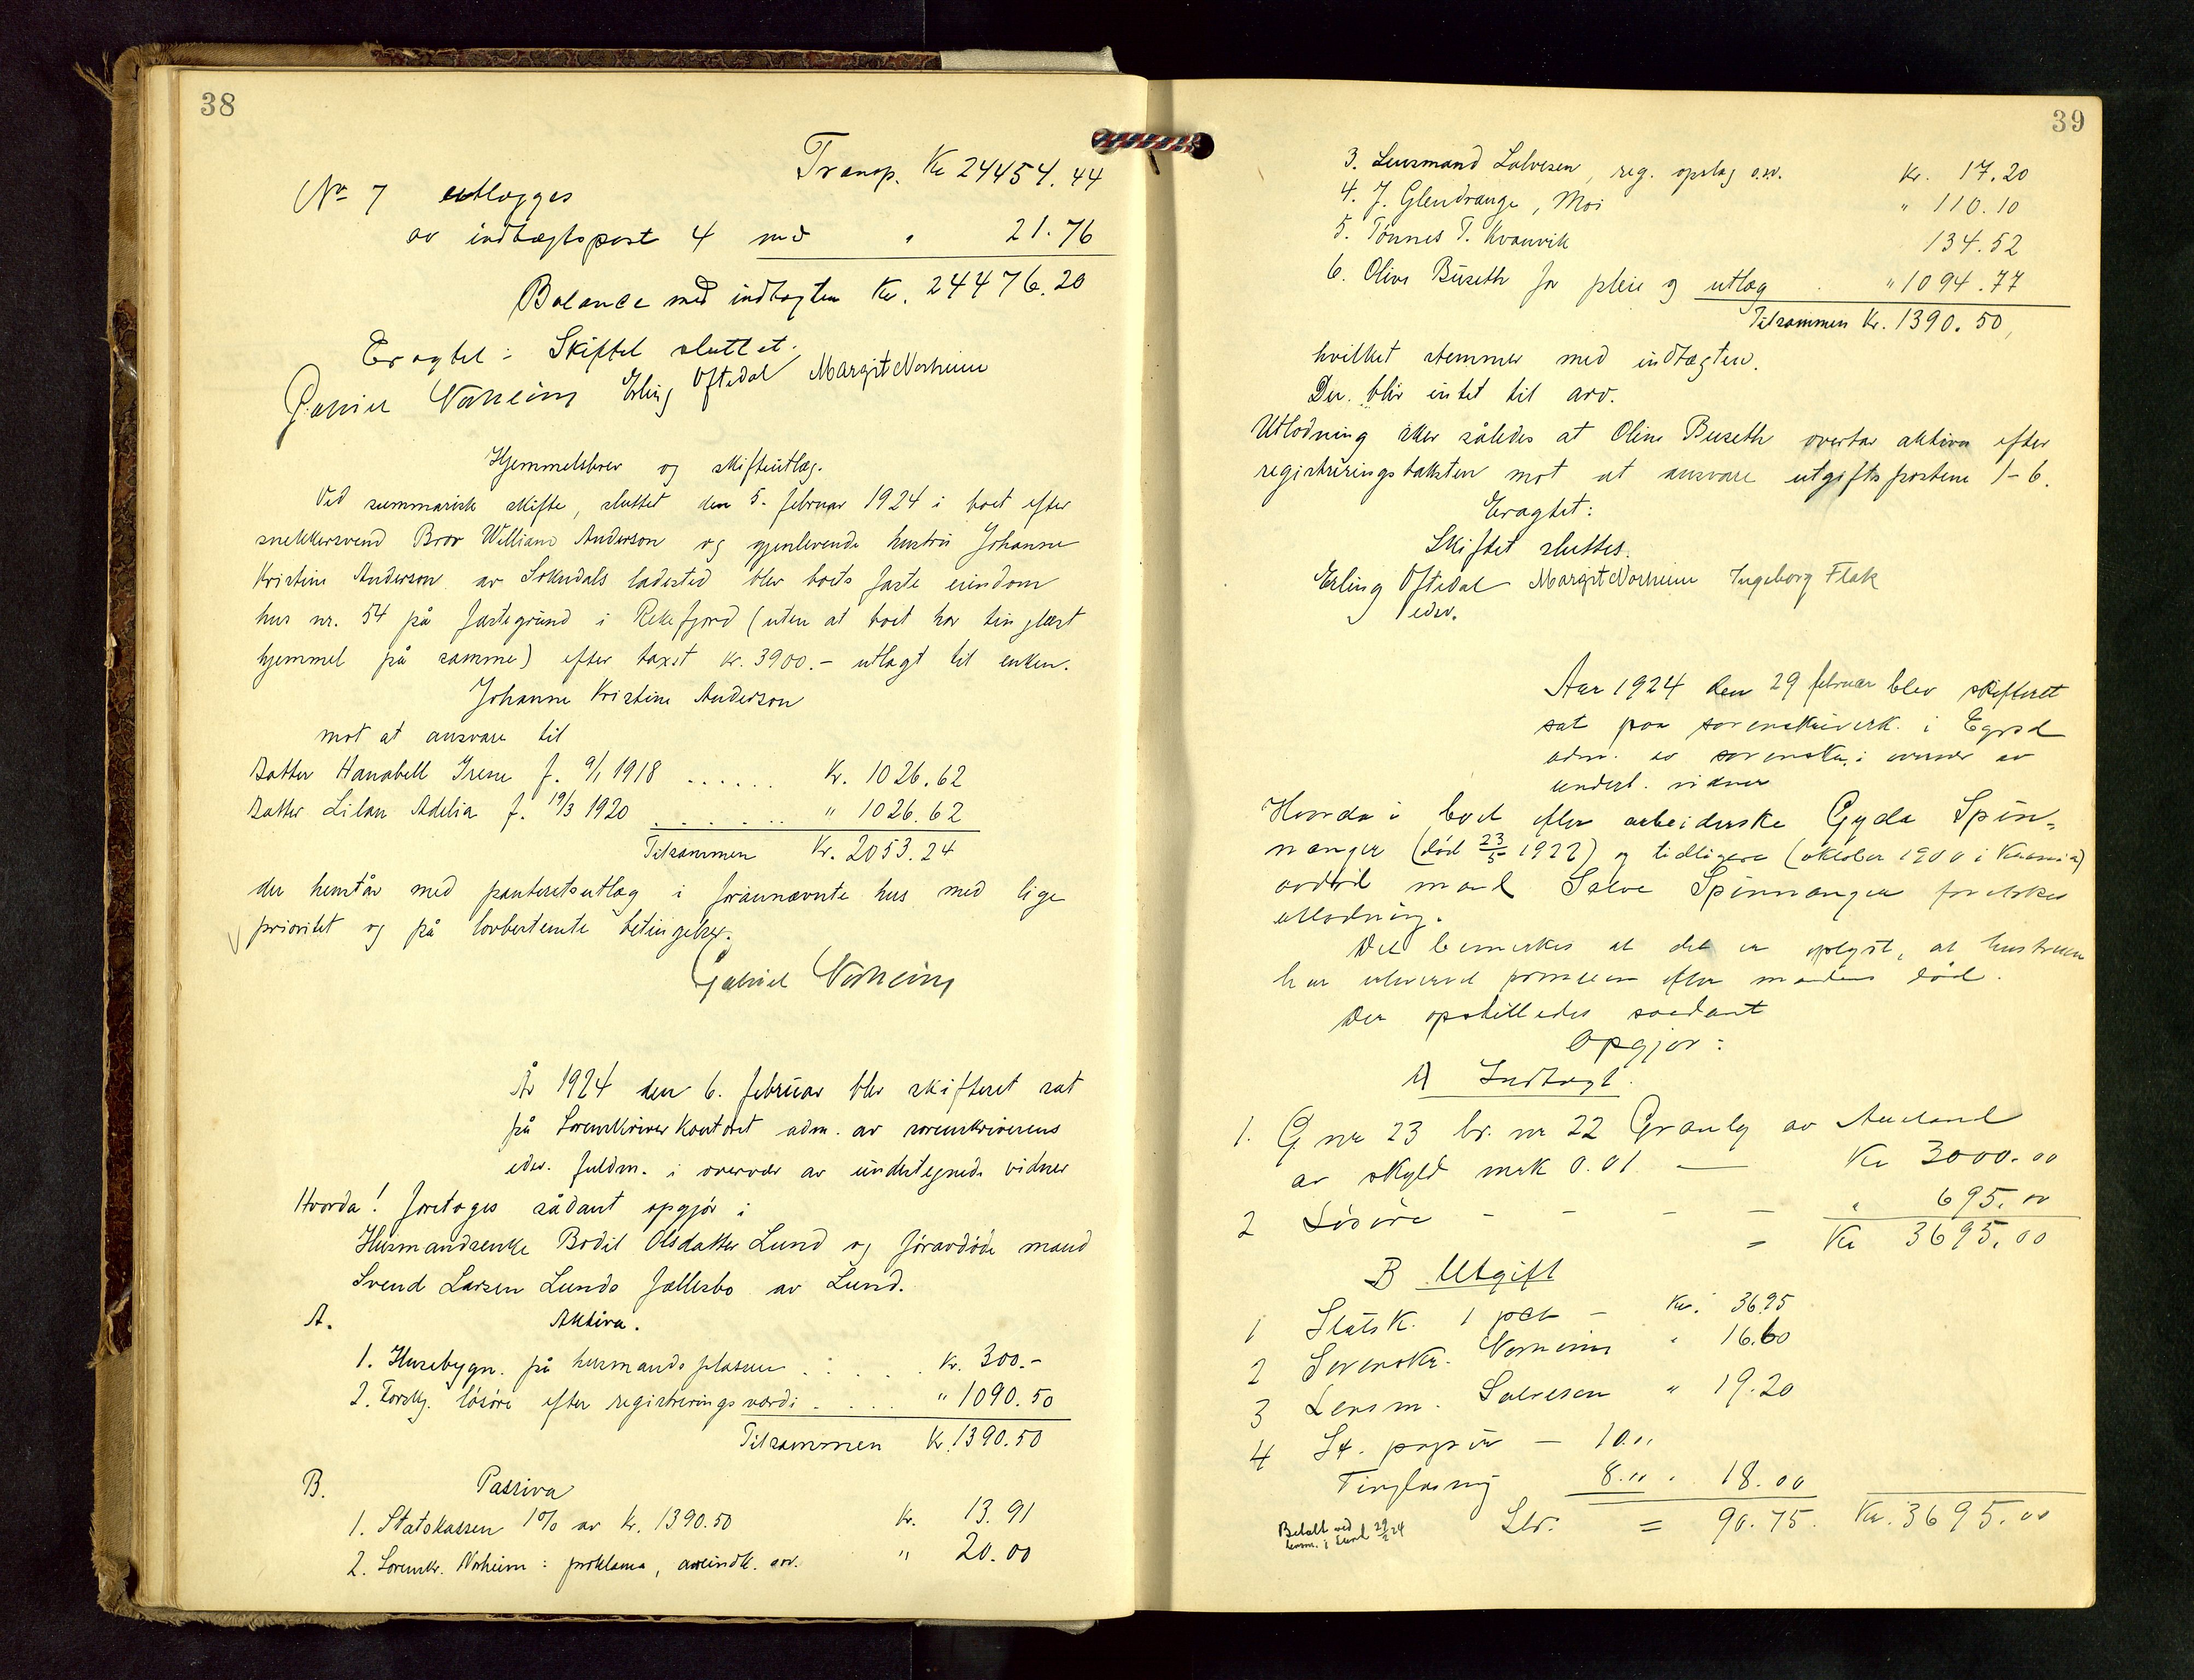 38
Transp. Kr 24454.44
No 7 utlægges
av indtægtspost 4 med " 21.76
Balance med indtægten Kr. 24476.20
Eragtet: Skiftet sluttet.
Gabriel Norheim Erling Oftedal Margit Norheim
Hjemmelsbrev og skifteutlæg.
Ved summarisk skifte, sluttet den 5. februar 1924 i boet efter
snekkersvend Bror William Anderson og gjenlevende hustru Johanne
Kristine Anderson av Sokndals ladested blev boets faste eiendom
hus nr. 54 på fæstegrund i Rekefjord (uten at boet har tinglæst
hjemmel på samme) efter taxst kr. 3900.- utlagt til enken.
Johanne Kristine Anderson
mot at ansvare til
Datter Hanabell Irene f. 9/1 1918 ..... Kr. 1026.62
Datter Lilan Adelia f. 19/3 1920 ....... " 1026.62
Tilsammen Kr. 2053.24
der henstår med panteretsutlæg i forannævnte hus med lige
prioritet og på lovbestemte betingelser.
Gabriel Norheim
År 1924 den 6. februar blev skifteret sat
på Sorenskriverkontoret adm. av sorenskriverens
edsv. fuldm. i overvær av undertegnede vidner
Hvorda! foretoges sådant opgjør i
Husmandsenke Bodil Olsdatter Lund og føravdøde mand
Svend Larsen Lunds fællesbo av Lund.
A. Aktiva.
1. Husebygn. på husmandsplassen ..... Kr. 300.-
2. Forskj. løsøre efter registreringsværdi ..... " 1090.50
Tilsammen Kr. 1390.50
B. Passiva
1. Statskassen 1% av kr. 1390.50 Kr. 13.91
2. Sorenskr. Norheim: proklama, arveindk. osv. " 20.00
39
3. Lensmand Salvesen, reg. opslag o.sv. Kr. 17.20
4. J. Glendrange, Moi " 110.10
5. Tønnes T. Kvanvik 134.52
6. Oline Buseth for pleie og utlæg . " 1094.77
Tilsammen Kr. 1390.50,
hvilket stemmer med indtægten.
Der blir intet til arv.
Utlodning sker således at Oline Buseth overtar aktiva efter
registreringstaksten mot at ansvare utgiftspostene 1-6.
Eragtet:
Skiftet sluttes.
Erling Oftedal Margit Norheim Ingeborg Flak
edsv.
Aar 1924 den 29 februar blev skifteret
sat paa sorenskriverk. i Egrsd
adm. av sorenskr. i overvær av
undert. vidner
Hvorda i boet efter arbeiderske Gyda Spin-
nanger (død 23/5 1922) og tidligere (oktober 1900 i )
avdød mand Salve Spinnanger foretokes
utlodning.
Det bemerkes at det er oplyst, at hustruen
har erhvervet formuen efter mandens død.
Der opstilledes saadant
Opgjør:
A) Indtægt.
1. G nr 23 br. nr 22 Granly av Aueland
av skyld mrk 0.01 — Kr 3000.00
2 Løsøre - - - - " 695.00
= Kr 3695.00
B Utgift
1 Statsk. 1 pct - Kr. 36.95
2 Sorenskr. Norheim " 16.60
3 Lensm. Salvesen " 19.20
4 St. papir - 10.00
Tinglæsning 8.00 " 18.00
= 90.75. Kr. 3695.00
Betalt ved
lensm. i 29/2 24